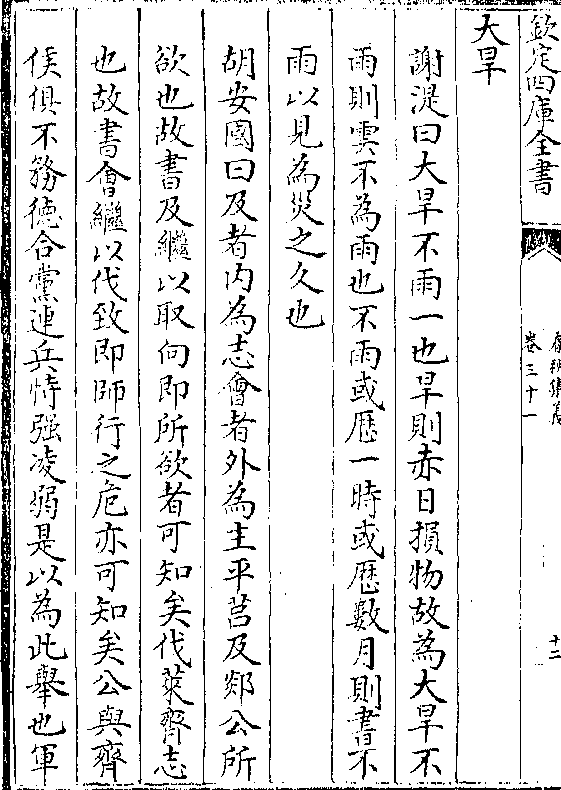 欽定四庫全書
春秋集義
卷三十一
十二
大旱
謝湜曰大旱不雨一也旱則赤日損物故為大旱不
雨則雲不為雨也不雨或歴一時或歴數月則書不
雨以見為災之久也
胡安國曰及者内為志會者外為主平莒及郯公所
欲也故書及繼以取向即所欲者可知矣伐萊齊志
也故書會繼以伐致即師行之危亦可知矣公與齊
侯俱不務徳合黨連兵恃强凌弱是以為此舉也軍